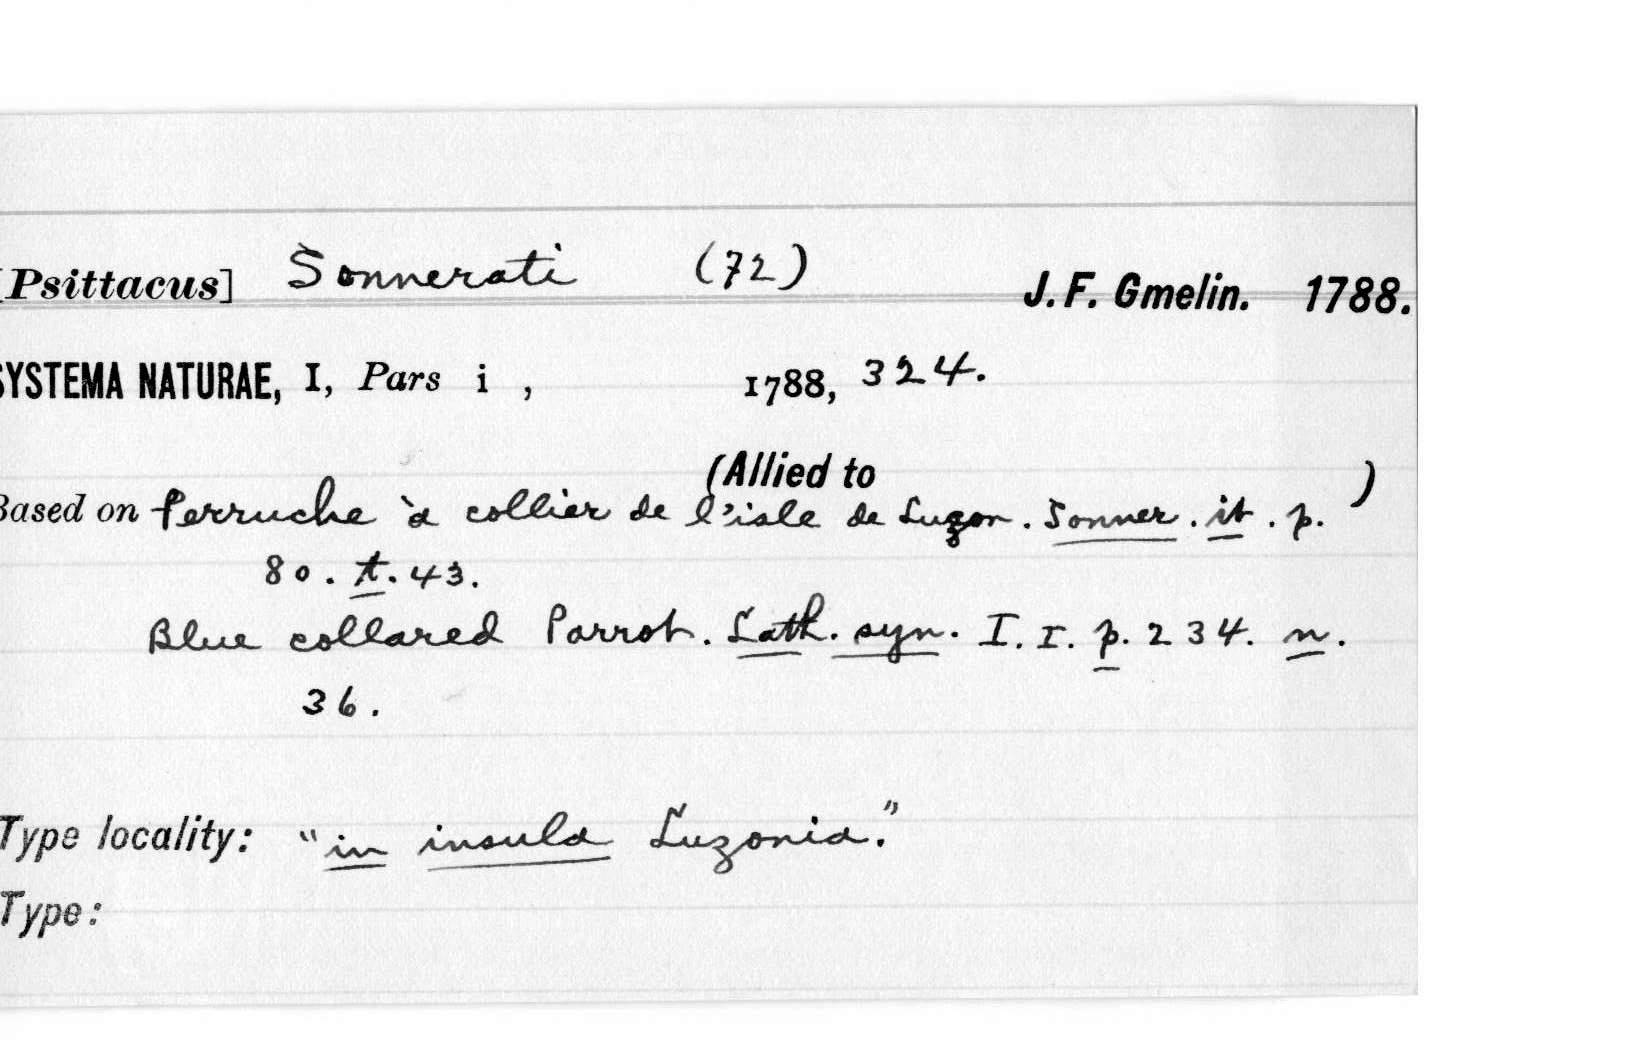 [Psittacus] Sonnerati (72) J. F. Gmelin. 1788.
SYSTEMA NATURAE, I, Pars i , 1788, 324.
(Allied to )
Based on Perruche à collier de l'isle de Luzon. Sonner. it. p.
80. t. 43.
Blue collared Parrot. Lath. syn. I. I. p. 234. n.
36.
Type locality: "in insula Luzonia."
Type: